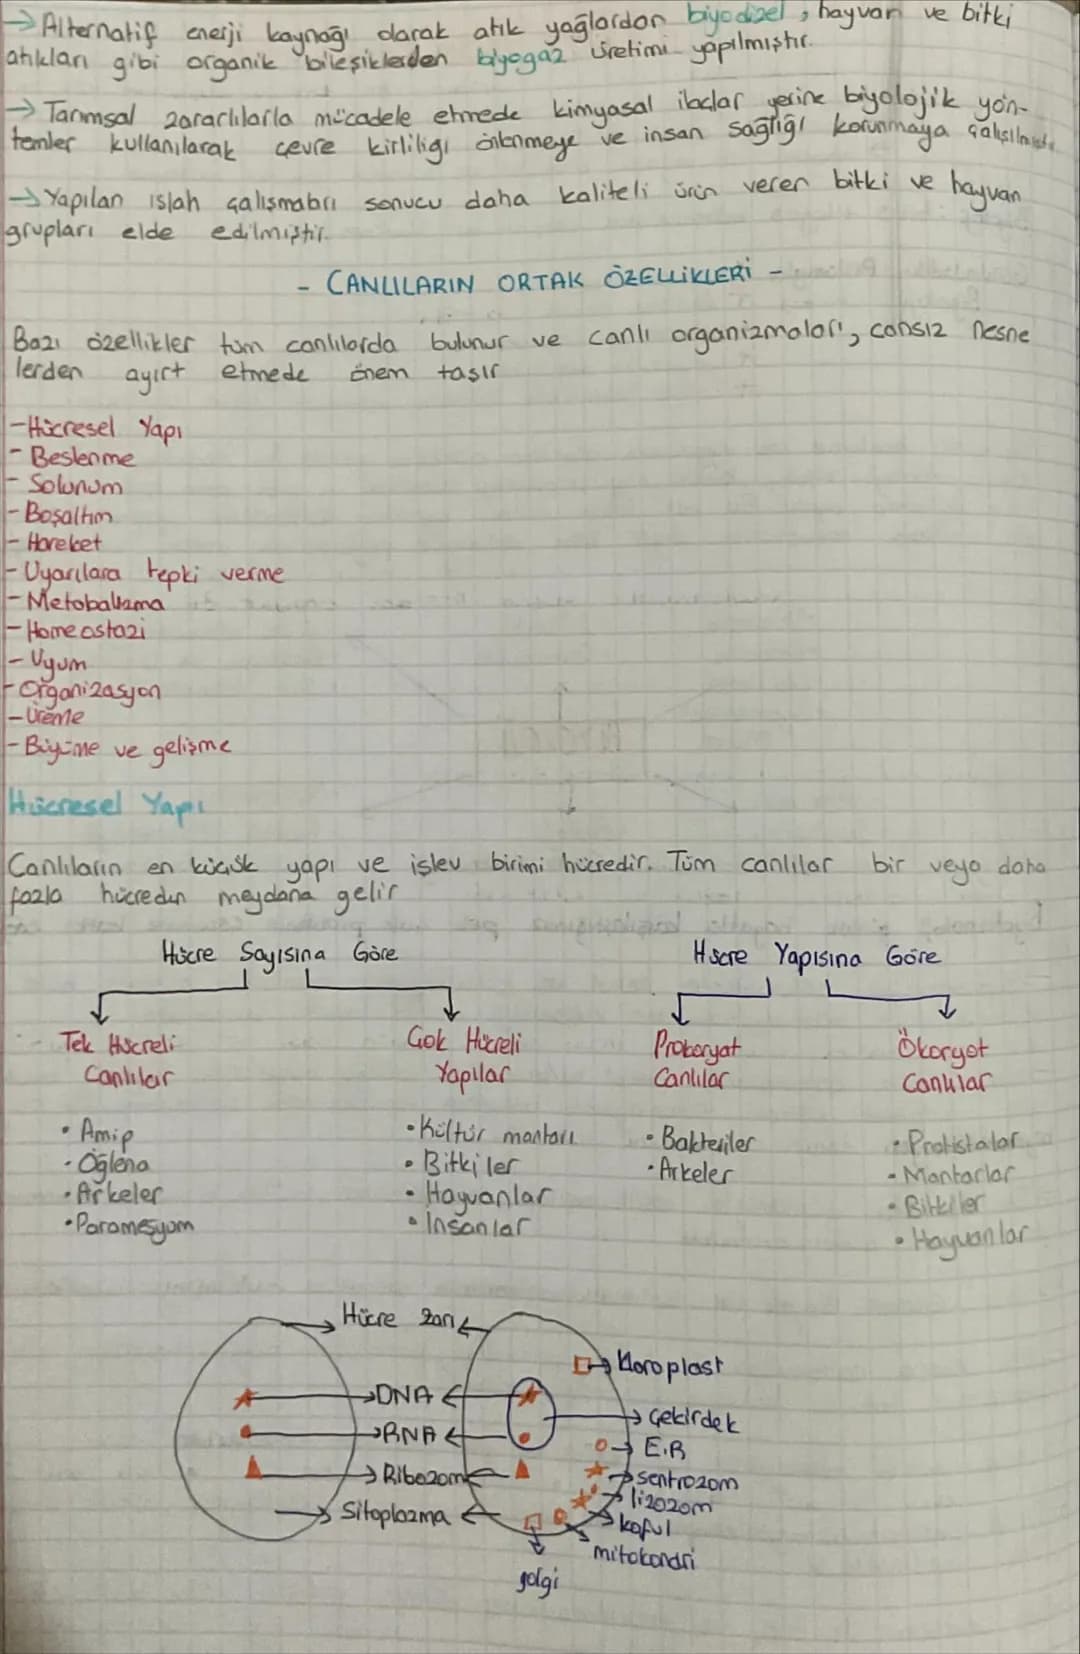 → Alternatif enerji kaynağı olarak atık yağlardan biyodizel, hayvan ve bitki
atıkları gibi organik bileşiklerden biyogaz üretimi yapılmıştır.
→ Tarımsal zararlılarla mücadele etmede kimyasal ilaçlar yerine biyolojik yön-
temler kullanılarak çevre kirliliği önlenmeye ve insan sağlığı korunmaya çalışılmıştır
→ Yapılan ıslah çalışmaları sonucu daha kaliteli ürün veren bitki ve hayvan
grupları elde edilmiştir.
- CANLILARIN ORTAK ÖZELLİKLERİ -
Bazı özellikler tüm canlılarda bulunur ve canlı organizmaları, cansız nesne
lerden ayırt etmede önem taşır
- Hücresel Yapı
- Beslenme
- Solunum
- Boşaltım
- Hareket
- Uyarılara tepki verme
- Metobalizma
- Homeostazi
- Uyum
- Organizasyon
- Üreme
- Büyüme ve gelişme
Hücresel Yapı
Canlıların en küçük yapı ve işlev birimi hücredir. Tüm canlılar bir veya daha
fazla hücreden meydana gelir
Hücre Sayısına Göre Hücre Yapısına Göre
Tek Hücreli Çok Hücreli Prokaryat Ökaryot
Canlılar Yapılar Canlılar Canlılar
• Amip • Kültür mantarı • Bakteriler • Protistalar
• Öğlena • Bitkiler • Arkeler • Mantarlar
• Arkeler • Hayvanlar • Bitkiler
• Paramesyum • İnsanlar • Hayvanlar
Hücre zarı
kloroplast
DNA
çekirdek
RNA
E.R
Ribozom
sentrozom
lizozom
Sitoplazma
koful
mitokondri
golgi